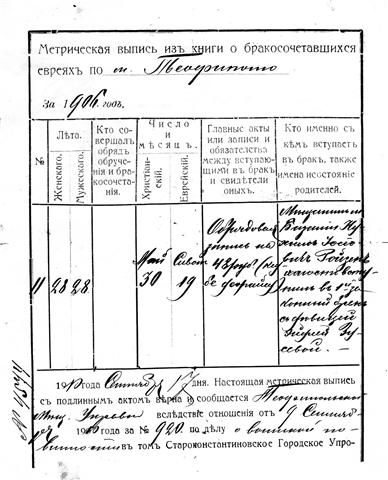 Метрическая выпись изъ книги о бракосочетавшихся
евреяхъ по м. Теофиполю
За 1906 годъ.
№
Лѣта.
Женскаго.
Мужескаго.
Кто со-
вершалъ
обрядъ
обруче-
нія и бра-
косочета-
нія.
Число
и
мѣсяцъ.
Христіан-
скій.
Еврейскій.
Главные акты
или записи и
обязательства
между вступаю-
щими въ бракъ
и свидѣтели
оныхъ.
Кто именно съ
кѣмъ вступаетъ
въ бракъ, также
имена и состояніе
родителей.
11
28
28
Май
30
Сиванъ
19
Обрядовая
запись на
48 руб.
Мѣщанинъ
въ 1й за-
конный бракъ
съ дѣвицей
1910 года Сентября 17 дня. Настоящая метрическая выпись
съ подлиннымъ актомъ вѣрна и сообщается Теофипольской
Мѣщ. Управѣ вслѣдствіе отношенія отъ 9 Сентяб-
ря 1910 года за № 920 по дѣлу о воинской по-
винности въ томъ Староконстантиновское Городское Упро-